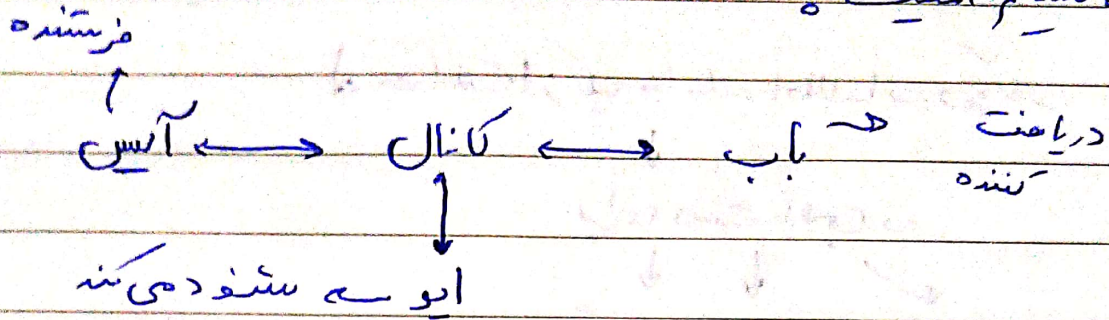 فرستنده
آلیس ↔ کانال ↔ باب → دریافت
کننده
ایو → شنود می کند